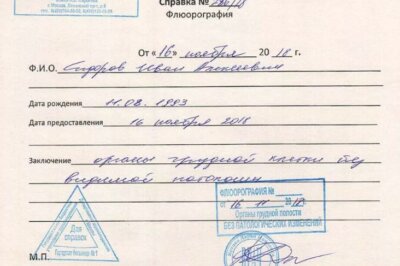 г. Москва,
Справка №
Флюорография
От «16» ноября 2018 г.
Ф.И.О. Сидоров Иван Алексеевич
Дата рождения 11.08.1993
Дата предоставления 16 ноября 2018
Заключение органы грудной клетки без
видимой патологии
ФЛЮОРОГРАФИЯ №
от 16 11 2018г.
Органы грудной полости
БЕЗ ПАТОЛОГИЧЕСКИХ ИЗМЕНЕНИЙ
Для
справок
М.П.